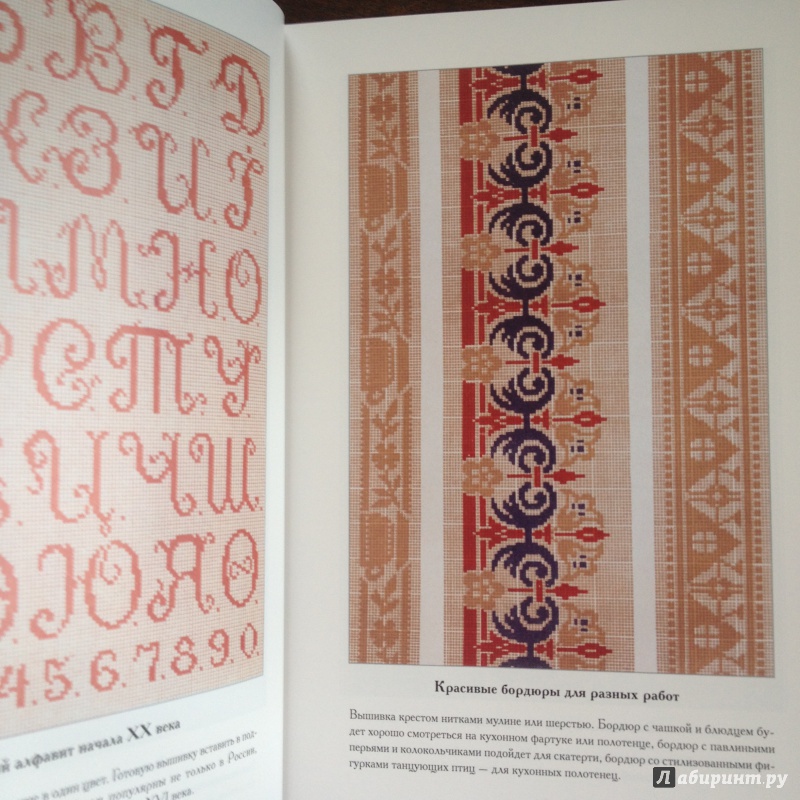 В Г Д
Е З И І
М Н О
С Т У
Ц Ч Ш
Ю Я Ѳ
4. 5. 6. 7. 8. 9. 0.
й алфавит начала XX века
в один цвет. Готовую вышивку вставить в под-
популярны не только в России,
XVI века.
Красивые бордюры для разных работ
Вышивка крестом нитками мулине или шерстью. Бордюр с чашкой и блюдцем бу-
дет хорошо смотреться на кухонном фартуке или полотенце, бордюр с павлиньими
перьями и колокольчиками подойдет для скатерти, бордюр со стилизованными фи-
гурками танцующих птиц — для кухонных полотенец.
Лабиринт.ру